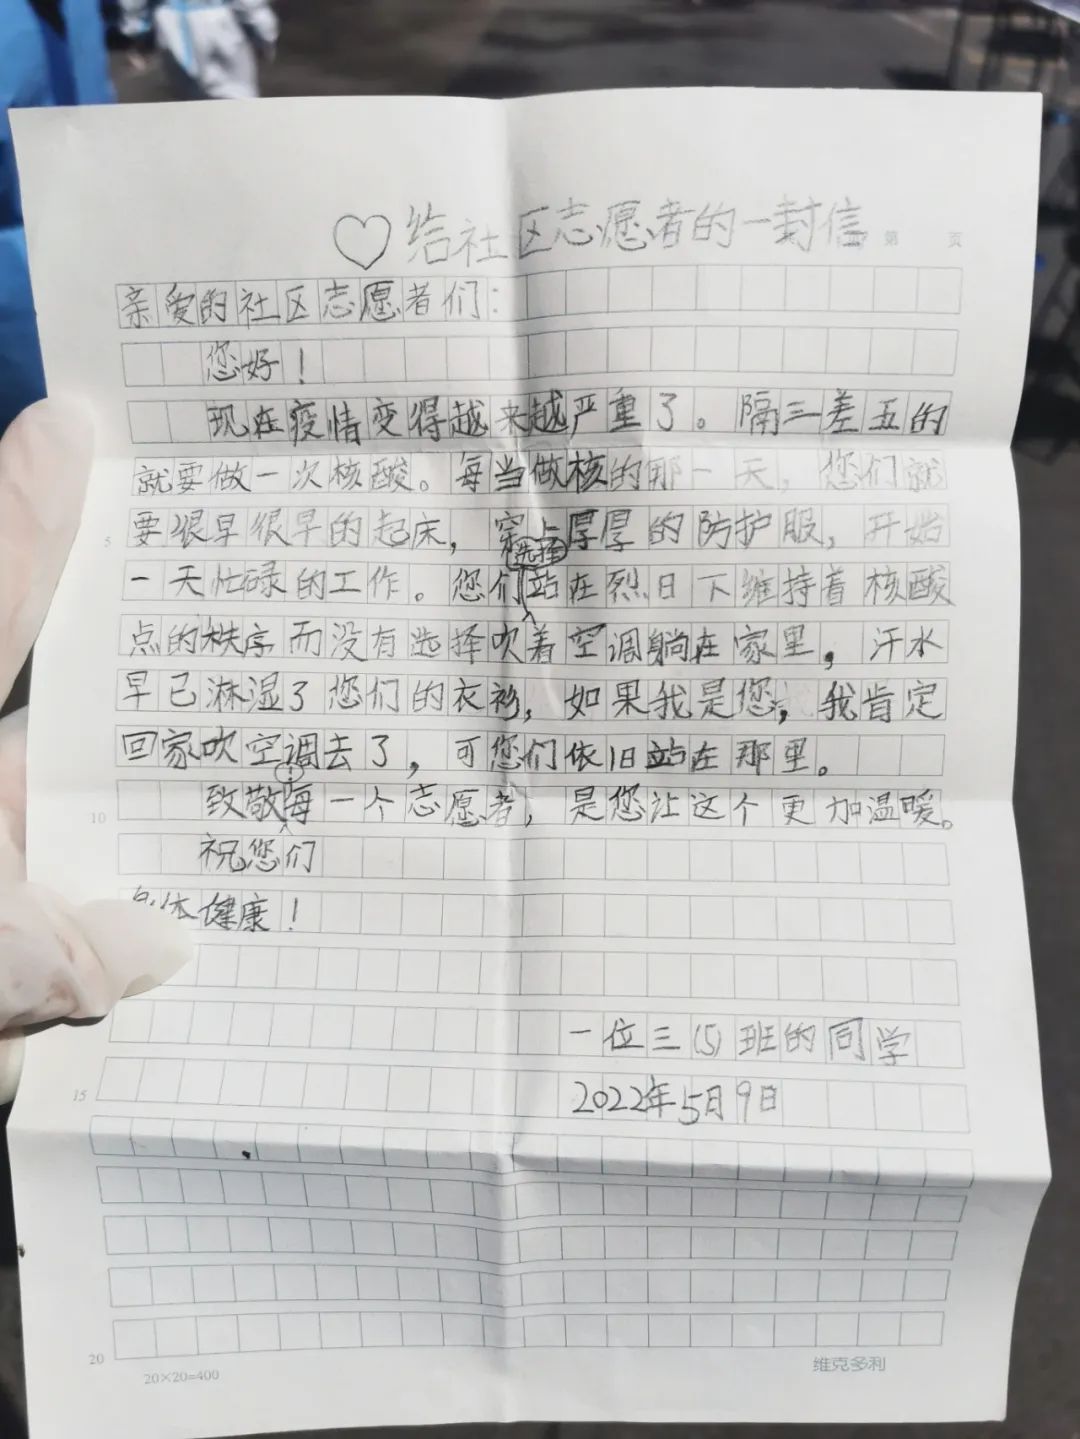 ♡给社区志愿者的一封信
第 页
亲爱的社区志愿者们：
您好！
现在疫情变得越来越严重了。隔三差五的
就要做一次核酸。每当做核的那一天，您们就
5 要很早很早的起床，穿上厚厚的防护服，开始
选择
一天忙碌的工作。您们站在烈日下维持着核酸
点的秩序而没有选择吹着空调躺在家里，汗水
早已淋湿了您们的衣衫，如果我是您，我肯定
回家吹空调去了，可您们依旧站在那里。
10 致敬每一个志愿者，是您让这个更加温暖。
祝您们
身体健康！
一位三（5）班的同学
15 2022年5月9日
20
20×20=400
维克多利